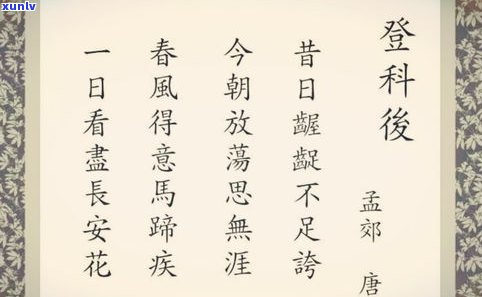 xunlv
登科後
孟郊 唐
昔日齷齪不足誇
今朝放蕩思無涯
春風得意馬蹄疾
一日看盡長安花